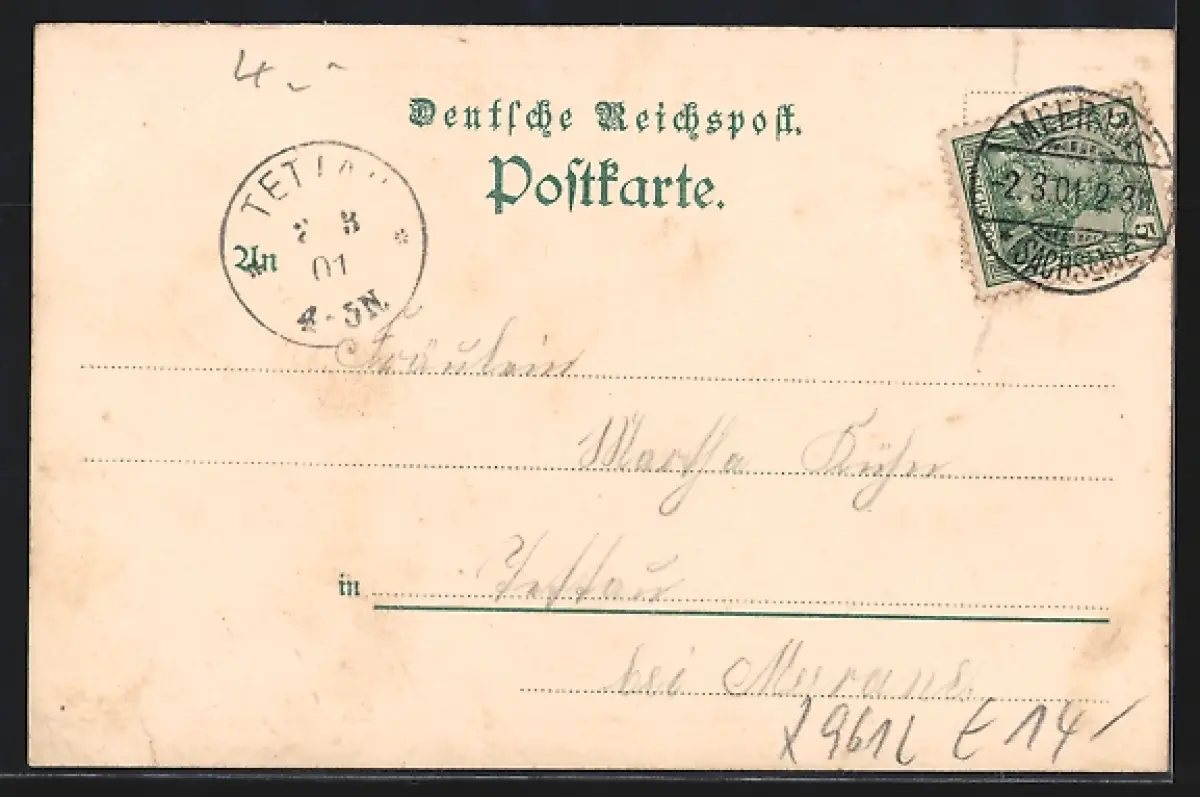 4.-
Deutsche Reichspost.
Postkarte.
TETTAU
2 3
01
4-5N.
MEERANE
-2.3.01.2-3N
SACHSEN
5
5
An
Fräulein
Martha Kühn
in Tettau
bei Meerane.
E 14